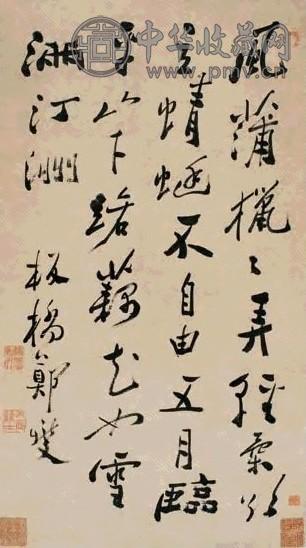 中华收藏网
www.pmv.cn
風蒲獵〻弄輕柔欲
立蜻蜓不自由五月臨
平山下路藕花如雪
滿汀洲
板橋鄭燮